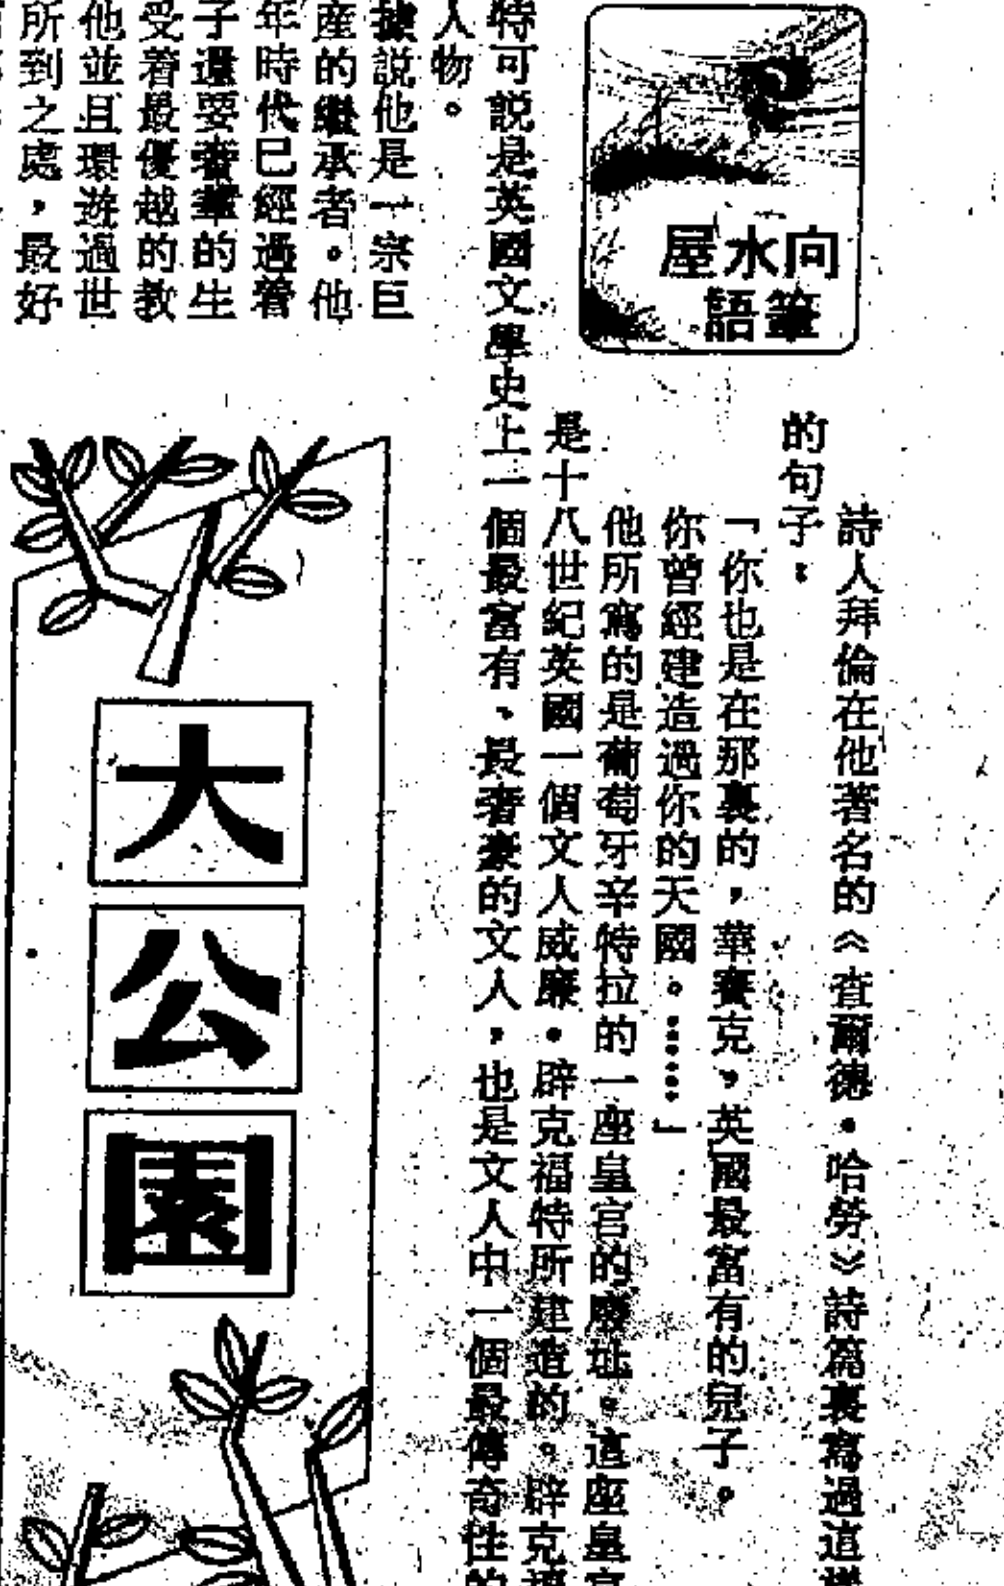 向水屋
筆語
詩人拜倫在他著名的《查爾德·哈勞》詩篇裏寫過這樣
的句子:
「你也是在那裏的,華賽克,英國最富有的兒子。
你曾經建造過你的天國。……」
他所寫的是葡萄牙辛特拉的一座皇宮的廢址。這座皇宮
是十八世紀英國一個文人威廉·辟克福特所建造的。辟克福
特可説是英國文學史上一個最富有、最奢豪的文人,也是文人中一個最傳奇性的
人物。
據説他是一宗巨
產的繼承者。他
年時代已經過着
子還要奢華的生
受着最優越的教
他並且環遊過世
所到之處,最好
大公園